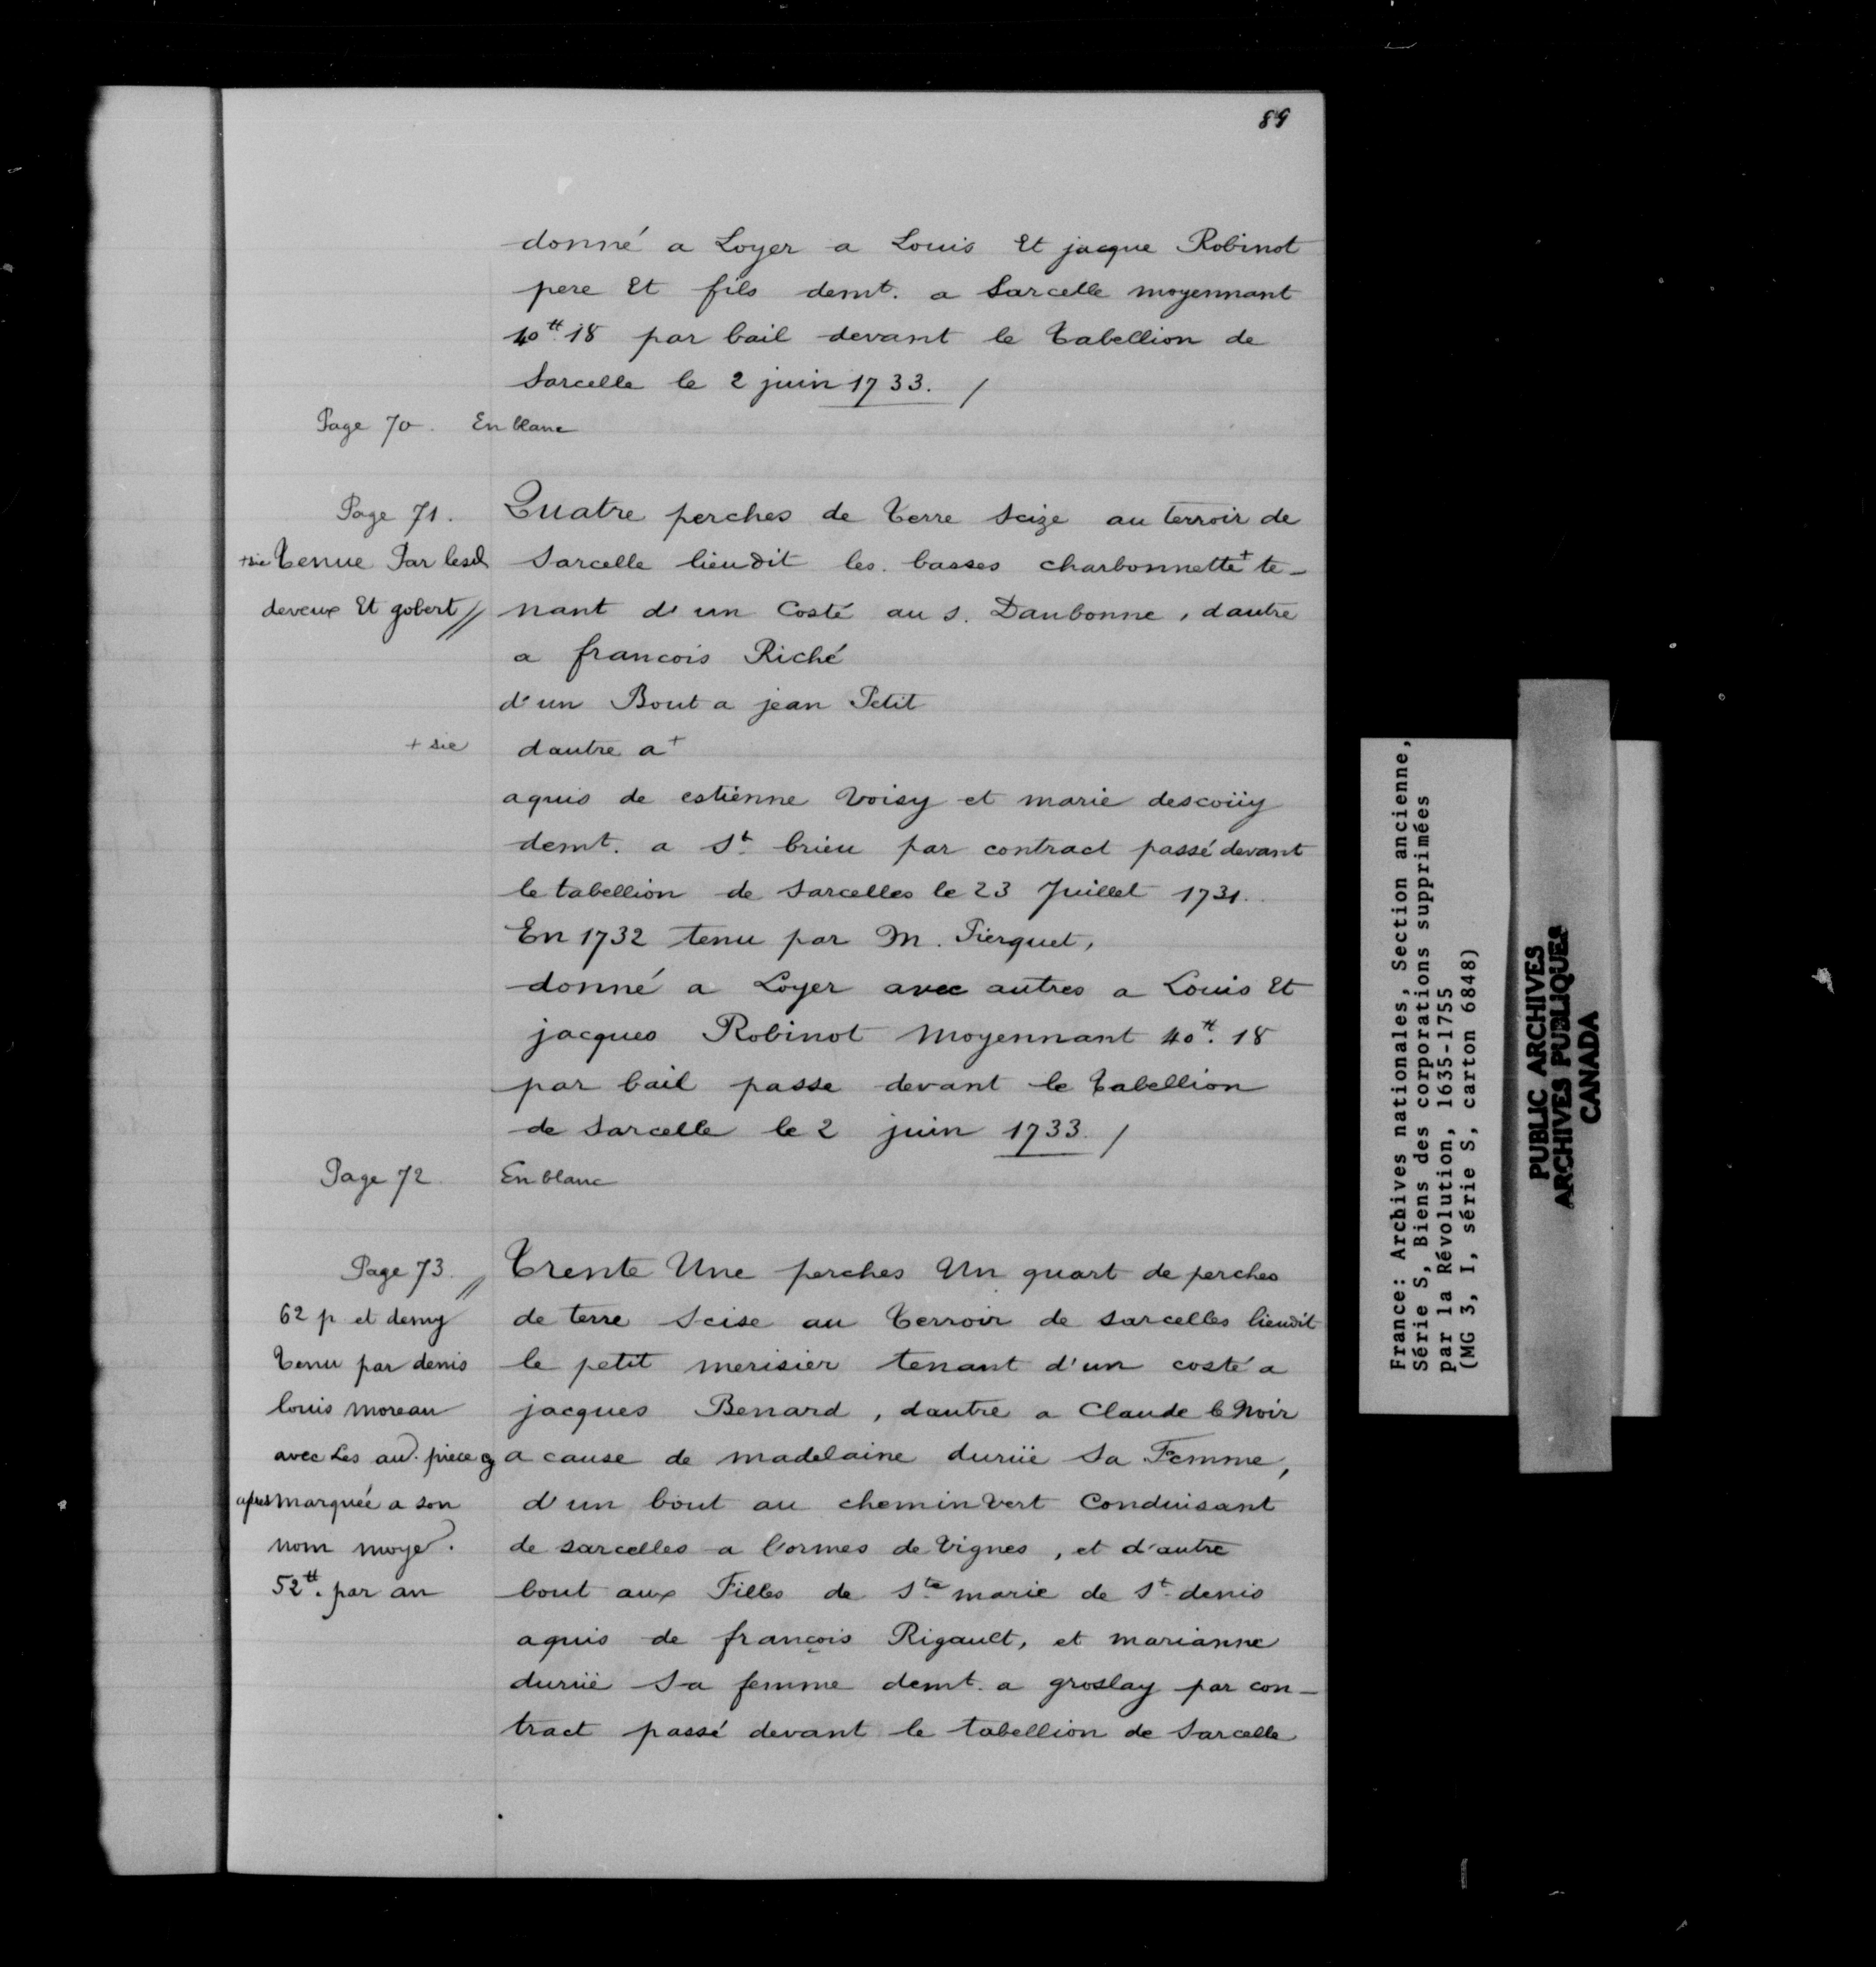 89
donné a Loyer a Louis Et jacque Robinot
pere Et fils demt. a Sarcelle moyennant
40tt. 18 par bail devant le Tabellion de
Sarcelle le 2 juin 1733. /
Page 70. En blanc
Page 71.
+ sic Tenue Par lesd
deveux Et gobert //
Quatre perches de Terre Scize au terroir de
Sarcelle lieudit les basses charbonnette + te-
nant d'un Costé au s. Daubonne, dautre
a francois Riché
d'un Bout a jean Petit
+ sic dautre a +
aquis de estienne Voisy et marie descoüy
demt. a St. brieu par contract passé devant
le tabellion de Sarcelles le 23 Juillet 1731.
En 1732 tenu par M. Pierquet,
donné a Loyer avec autres a Louis Et
jacques Robinot Moyennant 40tt. 18
par bail passe devant le Tabellion
de Sarcelle le 2 juin 1733. /
Page 72. En blanc
Page 73. //
62 p et demy
Tenu par denis
louis moreau
avec Les aud. piece cy
apres marquée a son
nom moye.
52tt. par an
Trente Une perches Un quart de perches
de terre Scise au Terroir de sarcelles lieudit
le petit merisier tenant d'un costé a
jacques Benard, dautre a Claude le Noir
a cause de madelaine duriië Sa Femme,
d'un bout au chemin Vert Conduisant
de sarcelles a l'ormes de Vignes, et d'autre
bout aux Filles de Ste. marie de St. denis
aquis de françois Rigault, et marianne
duriië Sa femme demt. a groslay par con-
tract passé devant le tabellion de Sarcelle
France: Archives nationales, Section ancienne,
Série S, Biens des corporations supprimées
par la Révolution, 1635-1755
(MG 3, I, série S, carton 6848)
PUBLIC ARCHIVES
ARCHIVES PUBLIQUES
CANADA